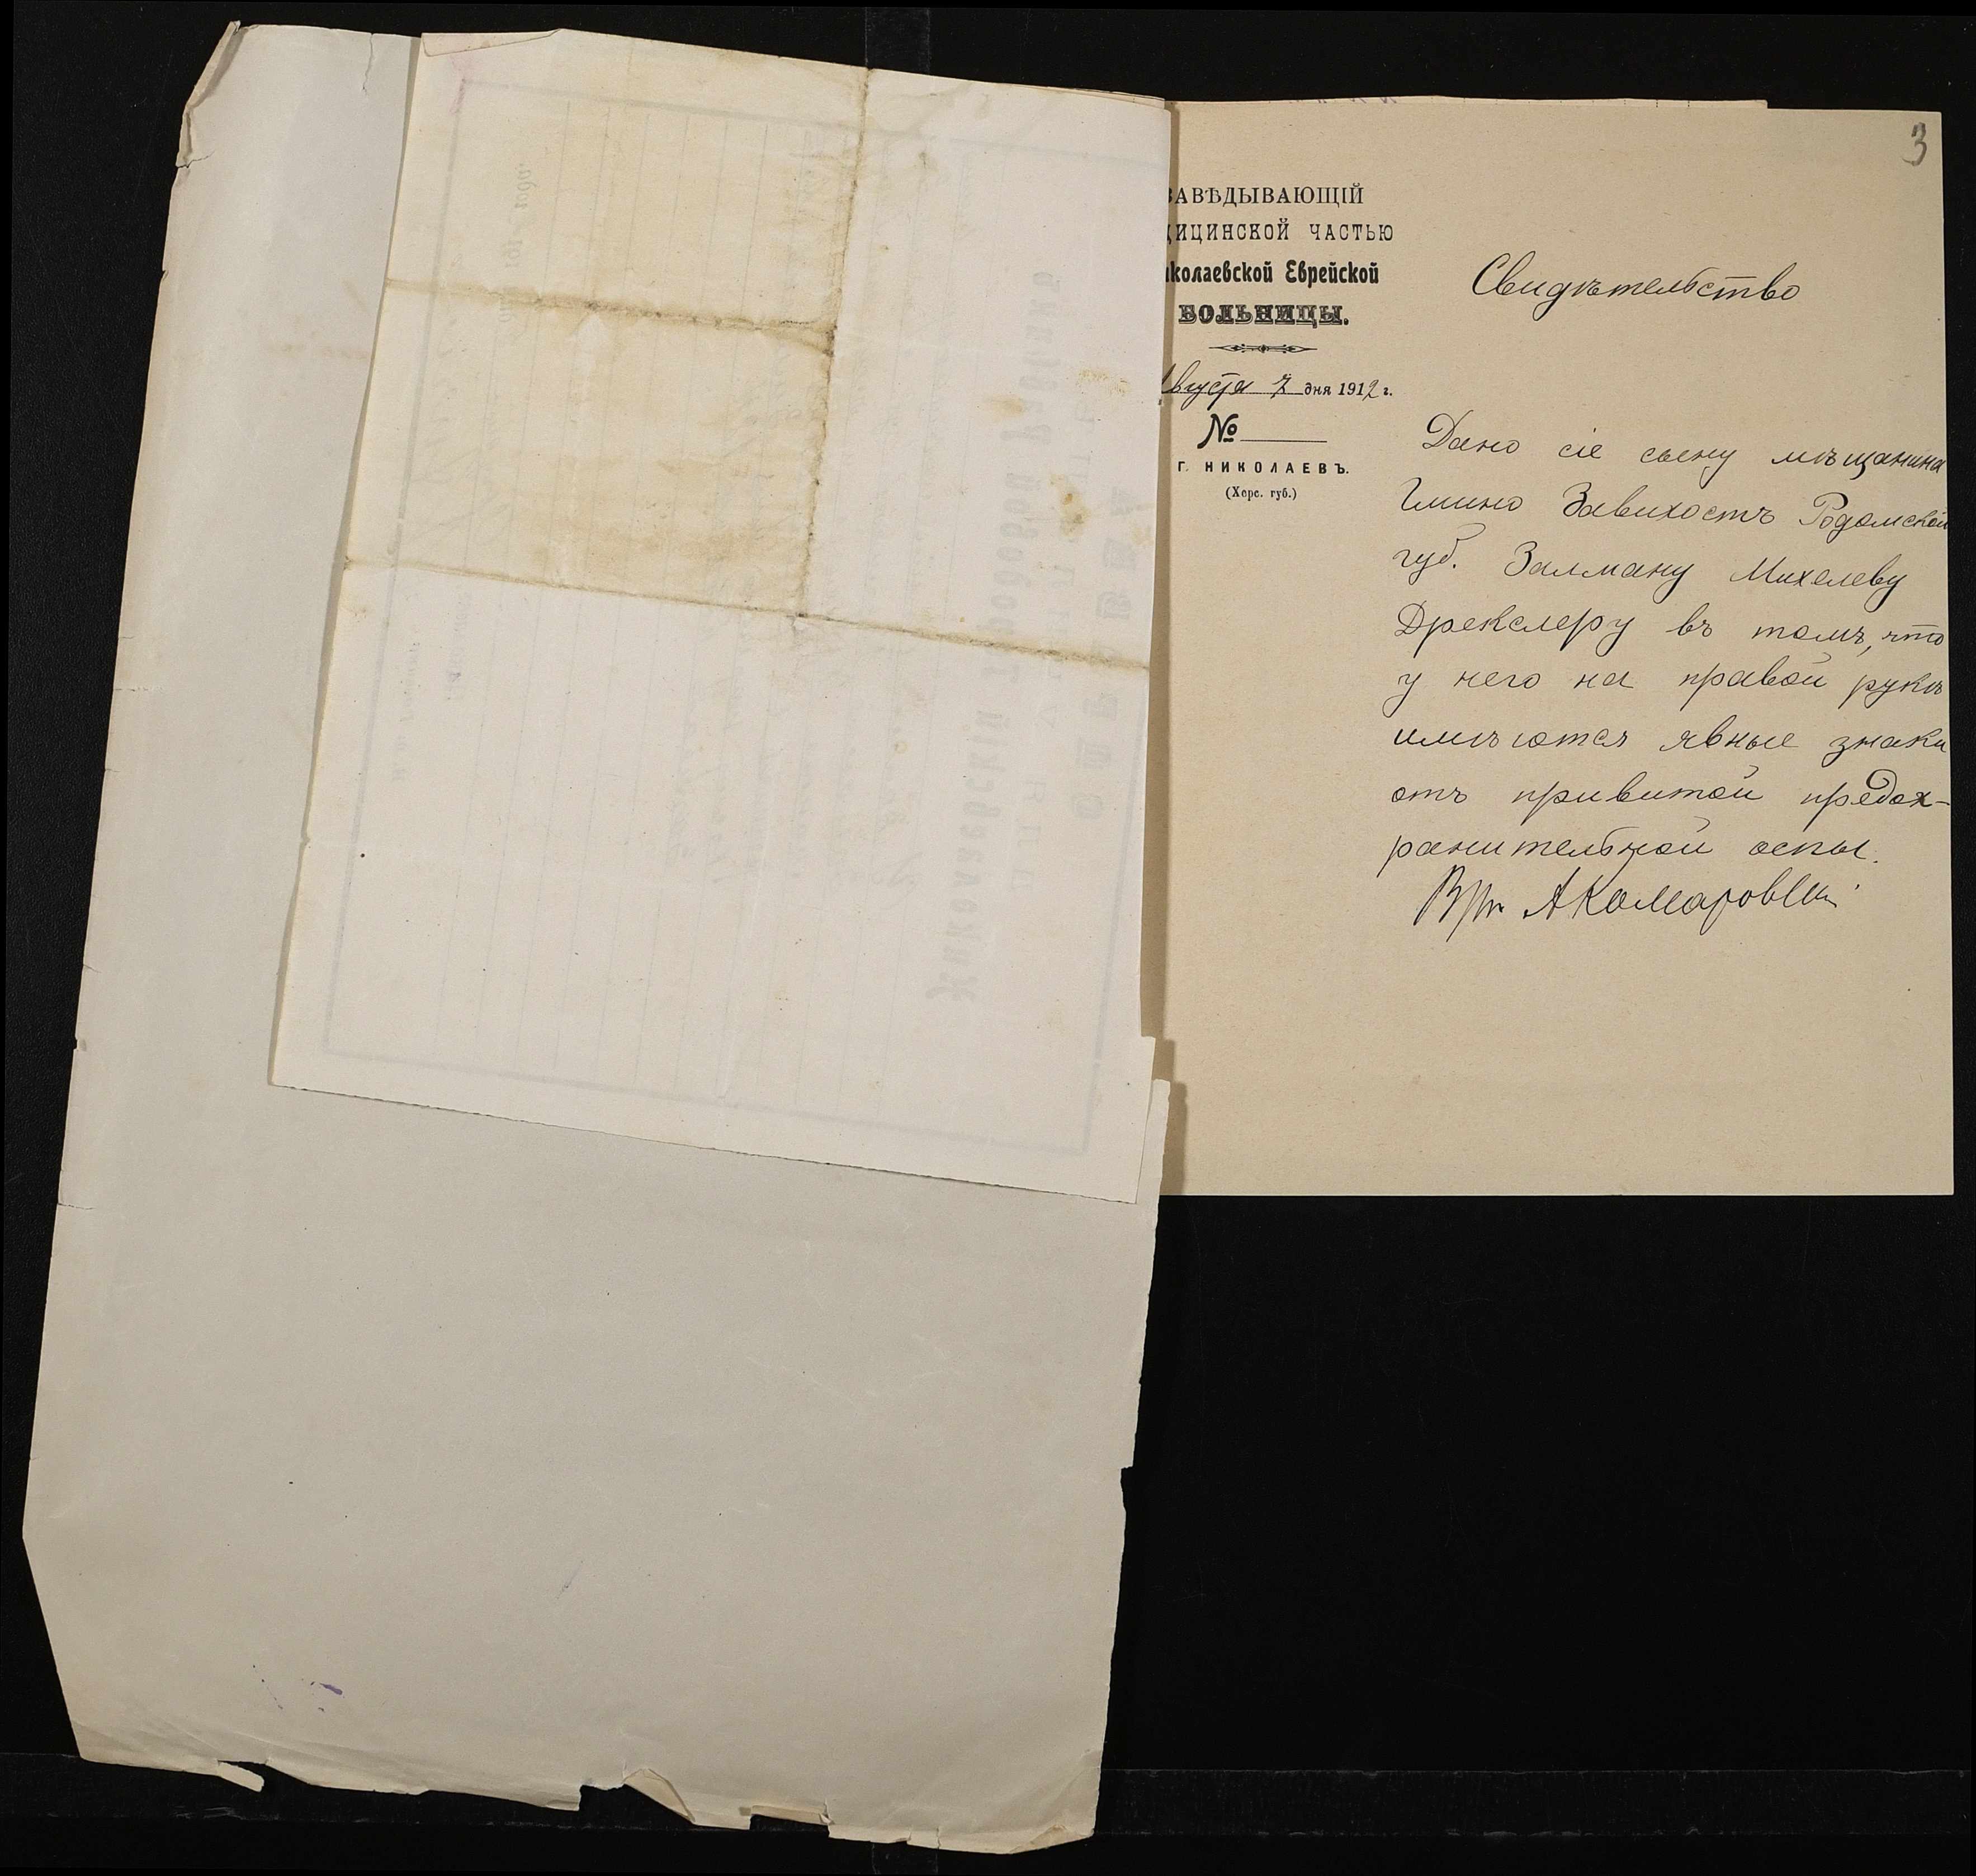 3
ЗАВѢДЫВАЮЩІЙ
ДИЦИНСКОЙ ЧАСТЬЮ
иколаевской Еврейской
БОЛЬНИЦЫ.
Августа 7 дня 1912 г.
№
Г. НИКОЛАЕВЪ.
(Херс. губ.)
Свидѣтельство
Дано сіе сыну мѣщанина
Гмино Завихостъ Радомской
губ. Залману Михелеву
Дрекслеру въ томъ, что
у него на правой рукѣ
имѣются явные знаки
отъ привитой предох-
ранительной оспы.
Врч АКомаровскій